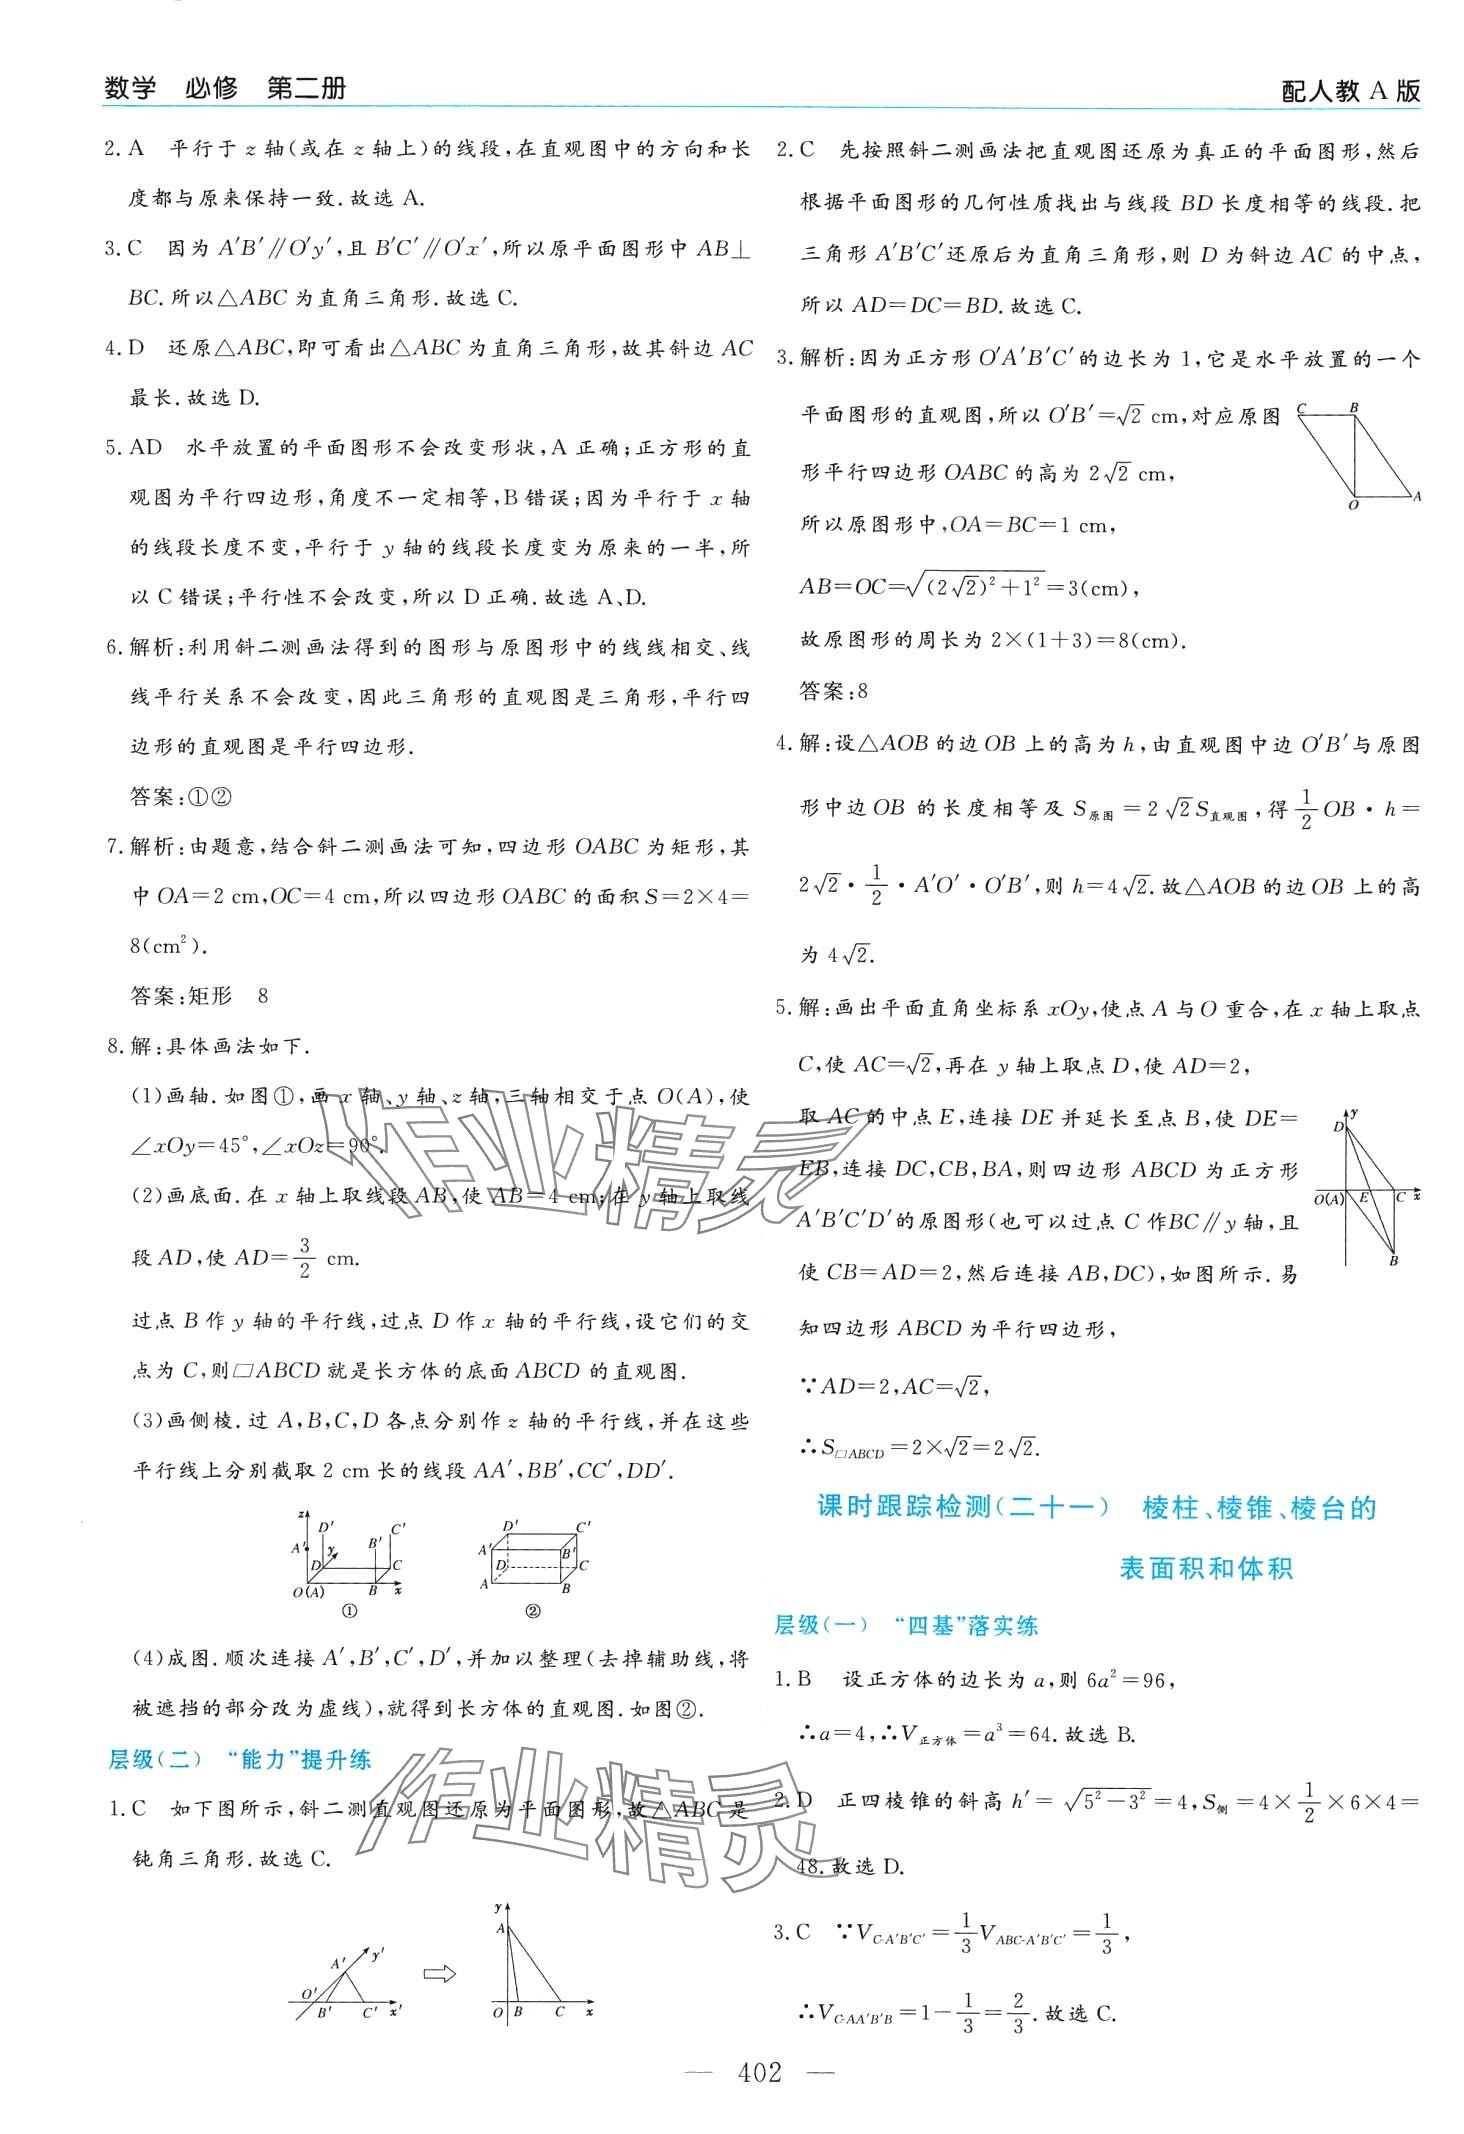 数学　必修　第二册
配人教 A 版
2. A　平行于 z 轴(或在 z 轴上)的线段,在直观图中的方向和长
度都与原来保持一致.故选 A.
3. C　因为 A′B′∥O′y′,且 B′C′∥O′x′,所以原平面图形中 AB⊥
BC.所以△ABC 为直角三角形.故选 C.
4. D　还原△ABC,即可看出△ABC 为直角三角形,故其斜边 AC
最长.故选 D.
5. AD　水平放置的平面图形不会改变形状,A 正确;正方形的直
观图为平行四边形,角度不一定相等,B 错误;因为平行于 x 轴
的线段长度不变,平行于 y 轴的线段长度变为原来的一半,所
以 C 错误;平行性不会改变,所以 D 正确.故选 A、D.
6. 解析:利用斜二测画法得到的图形与原图形中的线线相交、线
线平行关系不会改变,因此三角形的直观图是三角形,平行四
边形的直观图是平行四边形.
答案:①②
7. 解析:由题意,结合斜二测画法可知,四边形 OABC 为矩形,其
中 OA=2 cm,OC=4 cm,所以四边形 OABC 的面积 S=2×4=
8(cm²).
答案:矩形　8
8. 解:具体画法如下.
(1)画轴.如图①,画 x 轴、y 轴、z 轴,三轴相交于点 O(A),使
∠xOy=45°,∠xOz=90°.
(2)画底面.在 x 轴上取线段 AB,使 AB=4 cm;在 y 轴上取线
段 AD,使 AD=3/2 cm.
过点 B 作 y 轴的平行线,过点 D 作 x 轴的平行线,设它们的交
点为 C,则▱ABCD 就是长方体的底面 ABCD 的直观图.
(3)画侧棱.过 A,B,C,D 各点分别作 z 轴的平行线,并在这些
平行线上分别截取 2 cm 长的线段 AA′,BB′,CC′,DD′.
z D′ B′ C′ A′ y D C O(A) B x
①
D′ C′ A′ B′ D C A B
②
(4)成图.顺次连接 A′,B′,C′,D′,并加以整理(去掉辅助线,将
被遮挡的部分改为虚线),就得到长方体的直观图.如图②.
层级(二)　“能力”提升练
1. C　如下图所示,斜二测直观图还原为平面图形,故△ABC 是
钝角三角形.故选 C.
A′ y′ O′ B′ C′ x′
y A O B C x
2. C　先按照斜二测画法把直观图还原为真正的平面图形,然后
根据平面图形的几何性质找出与线段 BD 长度相等的线段.把
三角形 A′B′C′还原后为直角三角形,则 D 为斜边 AC 的中点,
所以 AD=DC=BD.故选 C.
3. 解析:因为正方形 O′A′B′C′的边长为 1,它是水平放置的一个
平面图形的直观图,所以 O′B′=√2 cm,对应原图
形平行四边形 OABC 的高为 2√2 cm,
所以原图形中,OA=BC=1 cm,
AB=OC=√((2√2)²+1²)=3(cm),
故原图形的周长为 2×(1+3)=8(cm).
答案:8
C B O A
4. 解:设△AOB 的边 OB 上的高为 h,由直观图中边 O′B′与原图
形中边 OB 的长度相等及 S原图=2√2S直观图,得 1/2 OB·h=
2√2·1/2·A′O′·O′B′,则 h=4√2.故△AOB 的边 OB 上的高
为 4√2.
5. 解:画出平面直角坐标系 xOy,使点 A 与 O 重合,在 x 轴上取点
C,使 AC=√2,再在 y 轴上取点 D,使 AD=2,
取 AC 的中点 E,连接 DE 并延长至点 B,使 DE=
EB,连接 DC,CB,BA,则四边形 ABCD 为正方形
A′B′C′D′的原图形(也可以过点 C 作 BC∥y 轴,且
使 CB=AD=2,然后连接 AB,DC),如图所示.易
知四边形 ABCD 为平行四边形,
∵AD=2,AC=√2,
∴S▱ABCD=2×√2=2√2.
y D O(A) E C x B
课时跟踪检测(二十一)　棱柱、棱锥、棱台的
表面积和体积
层级(一)　“四基”落实练
1. B　设正方体的边长为 a,则 6a²=96,
∴a=4,∴V正方体=a³=64.故选 B.
2. D　正四棱锥的斜高 h′=√(5²−3²)=4,S侧=4×1/2×6×4=
48.故选 D.
3. C　∵V_C-A′B′C′=1/3 V_ABC-A′B′C′=1/3,
∴V_C-AA′B′B=1−1/3=2/3.故选 C.
作业精灵
作业精灵
— 402 —